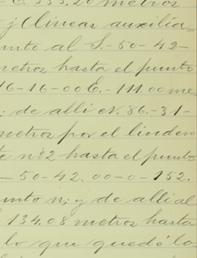 E. 333.20 metros
y; (lineas auxilia-
unto al S.-50-42-
metros hasta el punto
16-10-00 E. 111.00 me
; de alli al N. 86.-31-
metros por el lindero
te nº 2 hasta el punto
-50-42.00-0-152.
unto n; y de alli al
134.08 metros hasta
lo que quedó lo